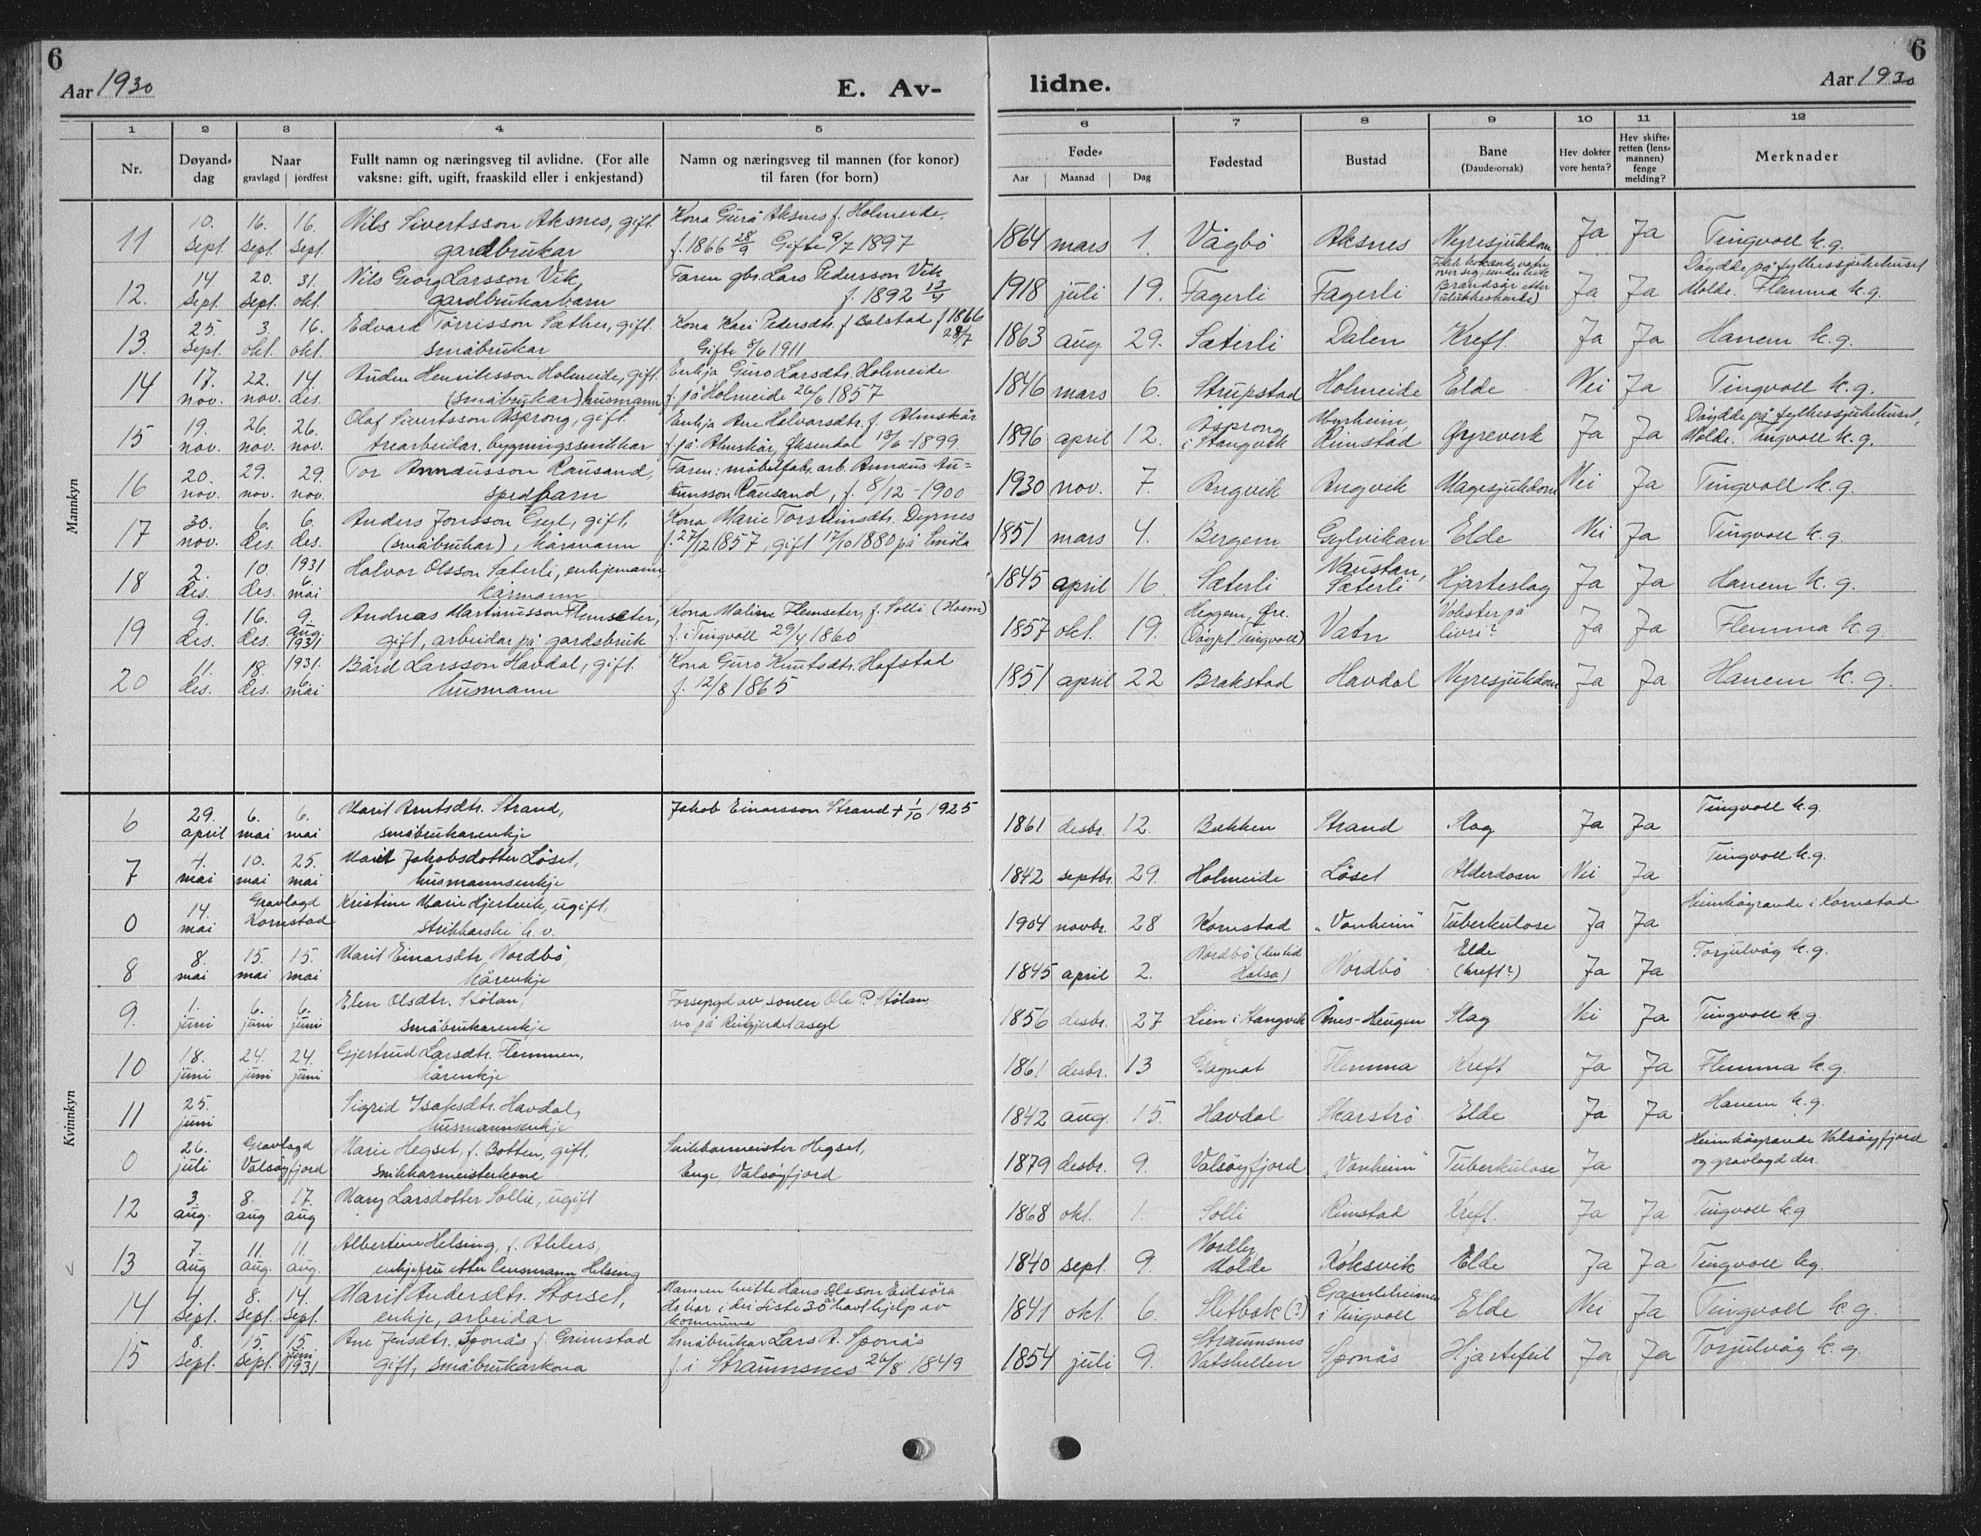 6
6
Aar 1930
E. Av-
lidne.
Aar 1930
1 2 3 4 5 6 7 8 9 10 11 12
Nr.
Døyand-
dag
Naar
gravlagd jordfest
Fullt namn og næringsveg til avlidne. (For alle
vaksne: gift, ugift, fraaskild eller i enkjestand)
Namn og næringsveg til mannen (for konor)
til faren (for born)
Føde-
Aar Maanad Dag
Fødestad
Bustad
Bane
(Daude-orsak)
Hev dokter
vore henta?
Hev skifte-
retten (lens-
mannen)
fenge
melding?
Merknader
Mannkyn
11 10. sept. 16. sept. 16. sept. Nils Sivertsson Aksnes, gift. Kona Guro Aksnes f. Holmeide, 1864 mars 1. Vågbö Aksnes Nyresjukdom Ja Ja Tingvoll k.g.
gardbrukar f. 1866 28/9 Gifte 9/7 1897
12. 14 sept. 20. sept. 31. okt. Nils Georg Larsson Vik Faren gbr. Lars Pedersson Vik 1918 juli 19. Fagerli Fagerli Brandsår etter Ja Ja Döydde på fylkessjukehuset
gardbrukarbarn f. 1892 13/4 Molde. Flemma k.g.
13. 25. sept. 3. okt. 16. okt. Edvard Törrisson Sæther, gift. Kona Kari Pedersdtr. f Bolstad f 1866 28/7 1863 aug. 29. Sæterli Dalen Kreft. Ja Ja Hanem k.g.
småbrukar Gifte 5/6 1911
14 17. nov. 22. nov. 14 des. Auden Henriksson Holmeide, gift. Enkja Guro Larsdtr. Holmeide 1846 mars 6. Strupstad Holmeide Elde Nei Ja Tingvoll k.g.
(småbrukar) husmann f. på Holmeide 26/6 1857
15 19. nov. 26. nov. 26. nov. Olaf Sivertsson Asprong, gift. Enkja Ane Halvorsdtr. f. Almskår 1896 april 12. Asprong i Stangvik Rimstad Ja Ja Döydde på fylkessjukehuset,
trearbeidar, bygningssnikkar f. på Almskår, Øksendal 13/6 - 1899 Molde. Tingvoll k.g.
16 20. nov. 29. nov. 29. nov. Tor Annæusson Rausand, Faren: möbelfabr. arb. Annæus Au- 1930 nov. 7. Angvik Angvik Magesjukdom Nei Ja Tingvoll k.g.
spedbarn kunsson Rausand, f. 8/12 - 1900
17 30. nov. 6. des. 6. des. Anders Jonsson Gyl, gift, Kona Marie Torsteinsdtr. Dyrnes 1851 mars 4. Bergem Gylvikan Elde Nei Ja Tingvoll k.g.
(småbrukar), kårmann f. 27/12 1857, gift 17/10 1880 på Smöla
18 2. des. 10. des. 1931 6. mai Halvor Olsson Sæterli, enkjemann, 1845 april 16. Sæterli Naustan, Sæterli Hjarteslag Ja Ja Hanem k.g.
kårmann
19 9. des. 16. des. 9. aug. 1931 Andreas Martinusson Flemsæter, Kona Maline Flemseter, f. Solli (Hoem) 1857 okt. 19. Heggem, Øre. Vatn Volster på livri? Ja Ja Flemma k.g.
gift, arbeidar på gardsbruk f. i Tingvoll 29/4 1860 (Dåypt Tingvoll)
20 11. des. 18. des. 1931. 6. mai Bård Larsson Havdal, gift. Kona Guro Knutsdtr. Hafstad 1851 april 22 Brakstad Havdal Nyresjukdom Ja Ja Hanem k.g.
husmann f. 12/8 1865
Kvinnkyn
6 29. april 6. mai 6. mai Marit Arntsdtr. Strand, Jakob Einarsson Strand + 1/10 1925 1861 desbr. 12. Bakken Strand Slag Ja Ja Tingvoll k.g.
småbrukarenkje
7 4. mai 10. mai 25. mai Marit Jakobsdotter Löset, 1842 septbr. 29. Holmeide Löset Alderdom Nei Ja Tingvoll k.g.
husmannsenkje
0 14. mai Gravlagd Kornstad Kristine Marie Hjertvik, ugift, 1904 novbr. 28 Kornstad "Vonheim" Tuberkulose Ja Ja Heimhöyrande i Kornstad
8 8. mai 15. mai 15. mai Marit Einarsdtr Nordbö, 1845 april 2. Nordbö (den tid Halsa) Nordbö Elde (kreft?) Ja Ja Torjulvåg k.g.
kårenkje
9. 1. juni 6. juni 6. juni Elen Olsdtr. Stölan, Forsergd av sonen Ole P. Stölan, 1856 desbr. 27 Lien i Stangvik Åmes-Haugen Slag Nei Ja Tingvoll k.g.
småbrukarenkje no på Reitgjerdet asyl
10 18. juni 24. juni 24. juni Gjertrud Larsdtr. Flemmen, 1861 desbr. 13 Gagnat Flemma Kreft Ja Ja Flemma k.g.
kårenkje
11 25. juni Sigrid Isaksdtr. Havdal, 1842 aug. 15. Havdal Skarströ Elde Ja Ja Hanem k.g.
husmannsenkje
0 26. juli Gravlagd Valsöyfjord Marie Hegset, f. Botten, gift, Snikkarmeister Hegset, 1879 desbr. 9. Valsöyfjord "Vonheim" Tuberkulose Ja Heimhöyrande Valsöyfjord
snikkarmeisterkone Enge Valsöyfjord og gravlagd der.
12 3. aug. 8. aug 17. aug Mary Larsdotter Sollie, ugift 1868 okt. 1. Solli Rimstad Kreft. Ja Ja Tingvoll k.g
13 7. aug 11. aug. 11. aug. Albertine Helsing, f. Ahlers, 1840 sept. 9. Molde Koksvik Elde Ja Ja Tingvoll kg.
enkjefru etter lensmann Helsing
14 4. sept. 8. sept. 14. sept. Marit Andersdtr. Storset, Mannen heitte Hans Olsson Eidsöra 1841 okt. 6. Sletbak (?) Gamleheimen i Tingvoll Elde Nei Ja Tingvoll k.g.
enkje, arbeidar
kommuna
15 8. sept. 15. sept. 15 juni 1931 Ane Jensdtr. Sponås f. Grimstad Småbrukar Lars A. Sponås 1854 juli 9. Straumsnes Vatshellen Sponås Hjartefeil Ja Ja Torjulvåg k.g.
gift, småbrukarkona f. i Straumsnes 26/8 1849